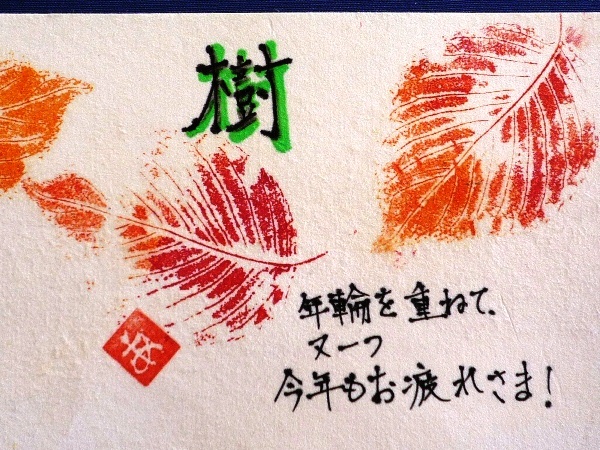 樹
年輪を重ねて、
又一つ
今年もお疲れさま!